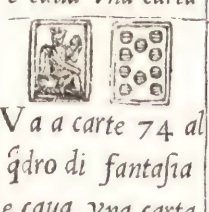 e caua vna carta
Va a carte 74 al
q̃dro di fantasia
e caua vna carta